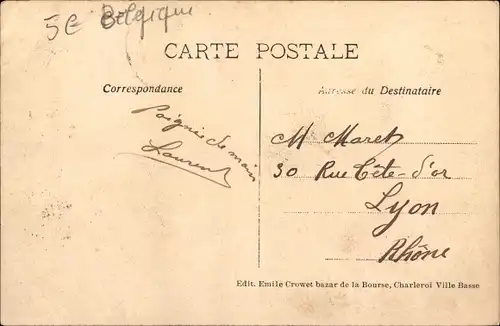 5€ Belgique
CARTE POSTALE
Correspondance
Adresse du Destinataire
Poignée de main
Laurent
M Maret
30 Rue Tête-d'or
Lyon
Rhône
Edit. Emile Crowet bazar de la Bourse, Charleroi Ville Basse